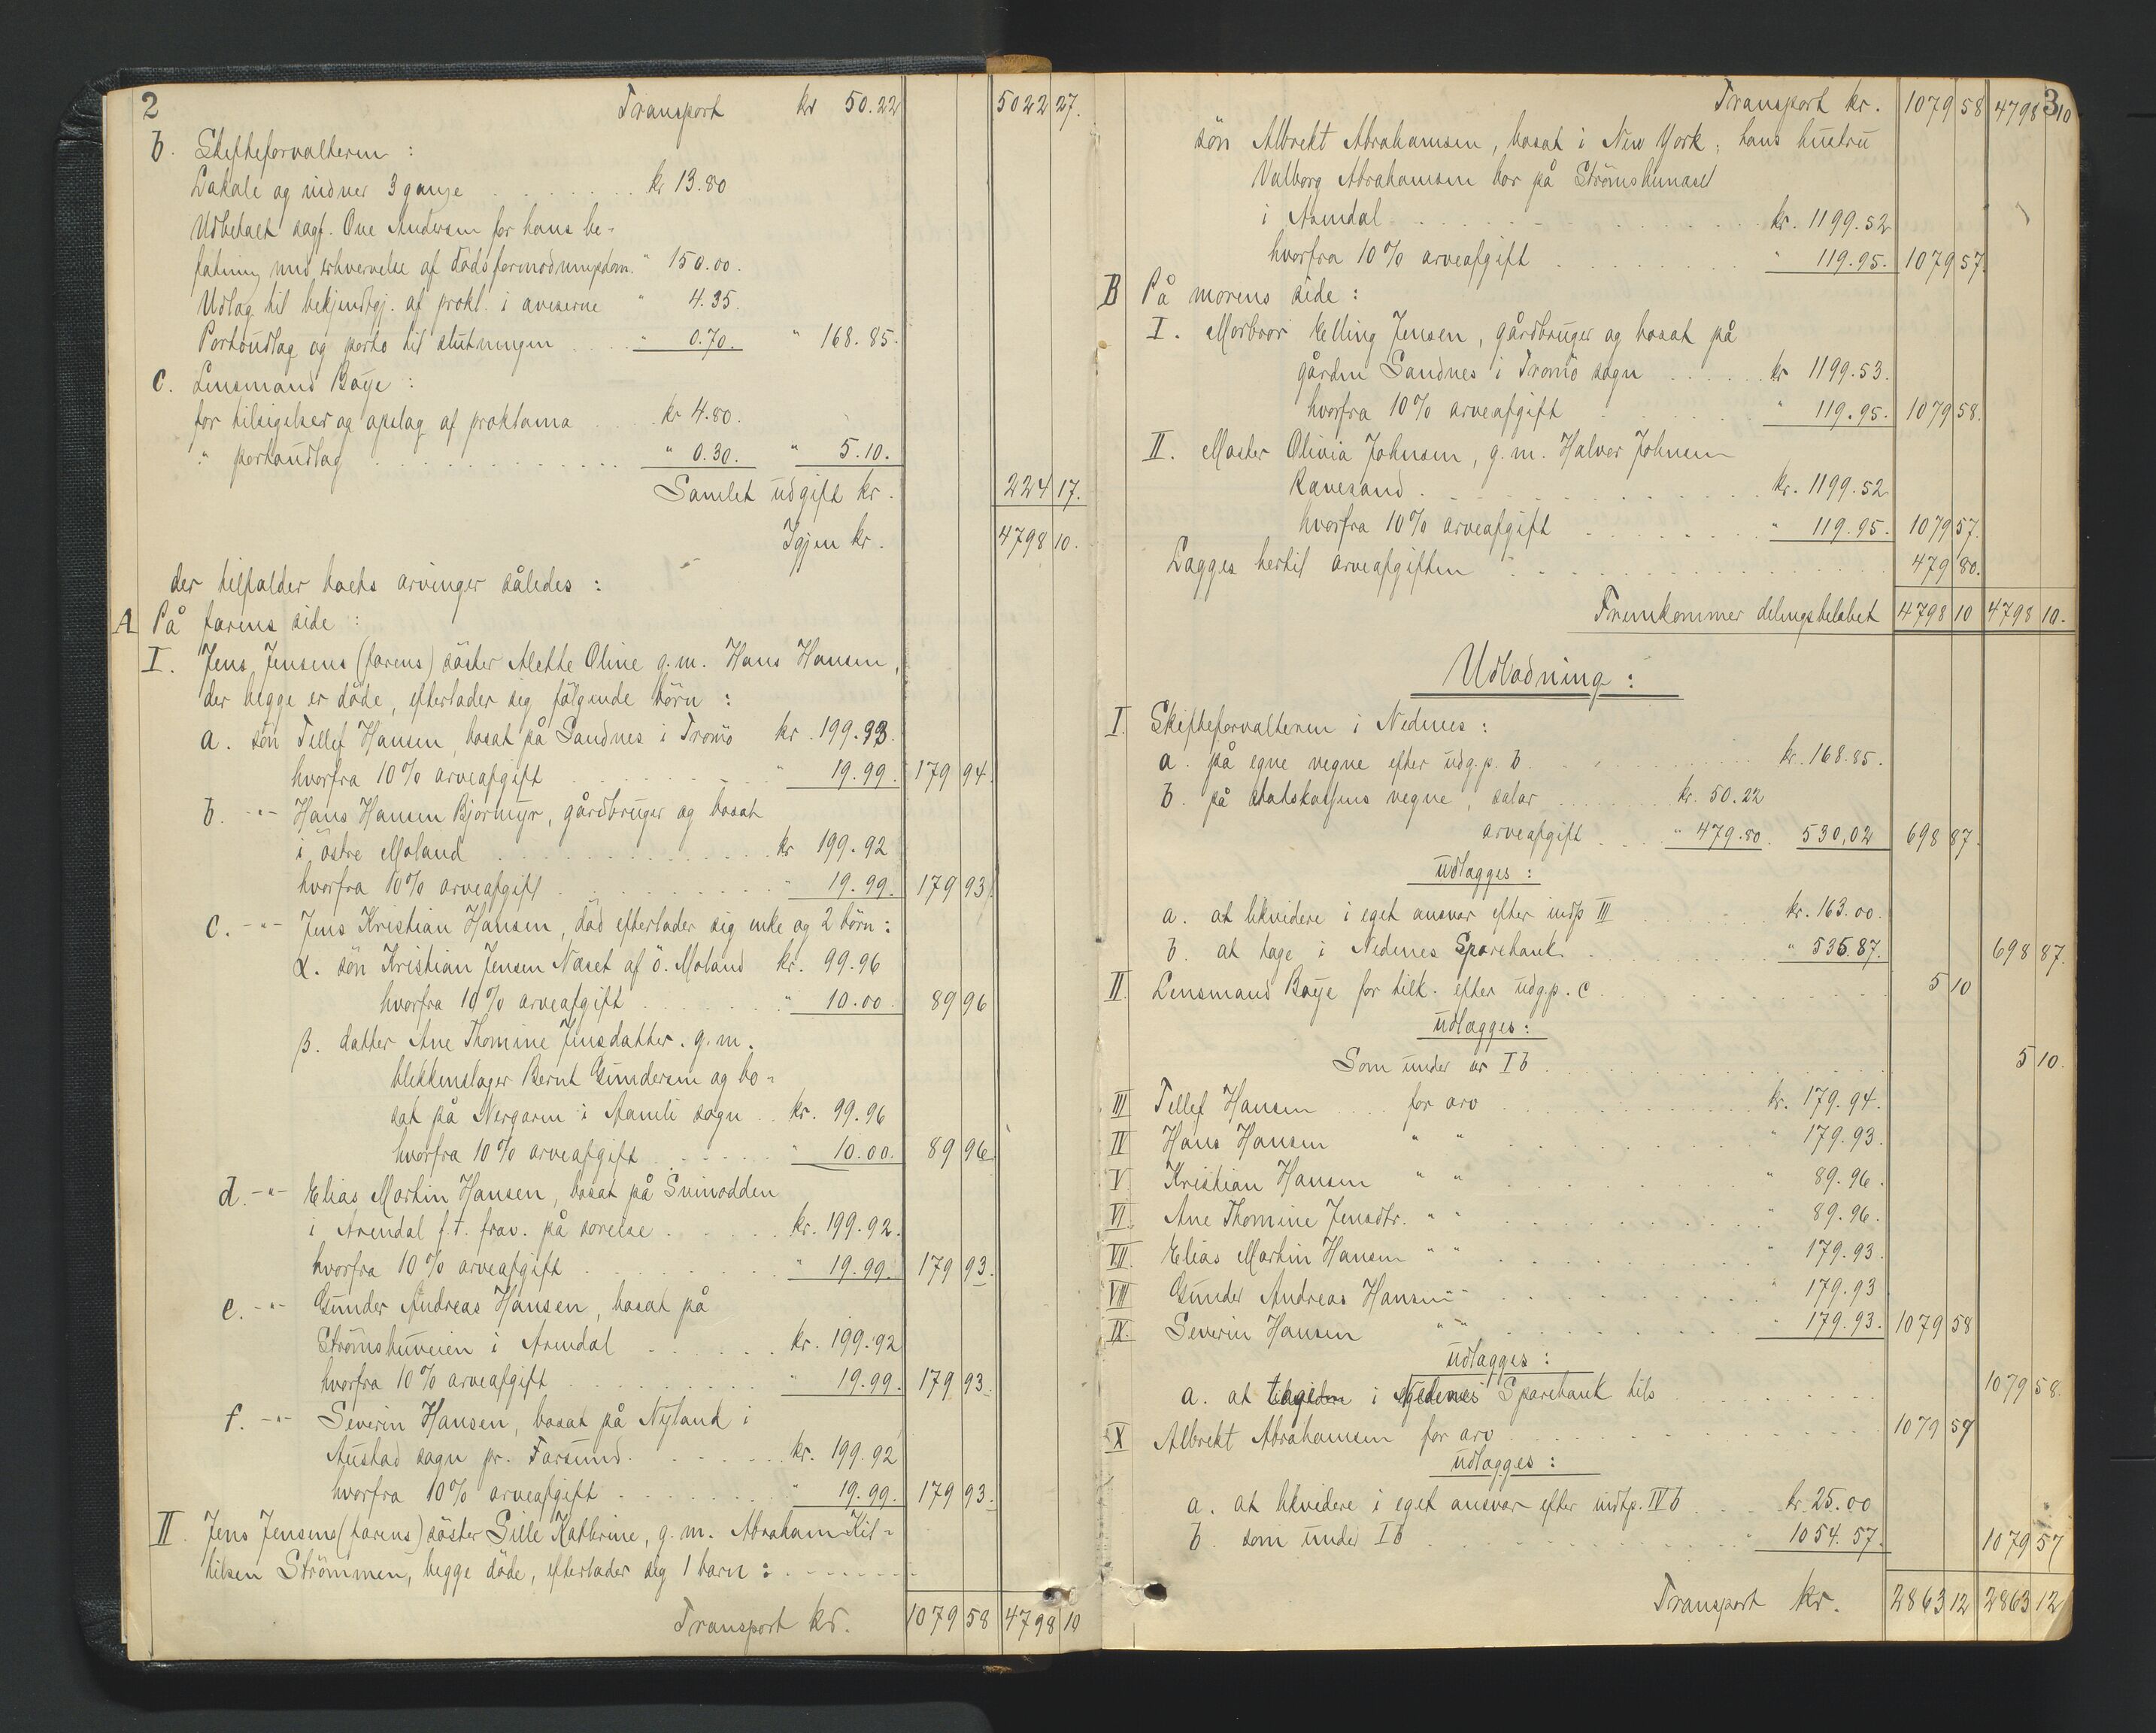 2 Transport kr 50.22 5022 27.
b. Skifteforvalteren :
Lokale og vidner 3 gange . . . . . . . kr 13.80
Udbetalt sagf. Ove Andersen for hans be-
fatning med erhvervelse af dødsformodningsdom. " 150.00.
Udlag til bekjendtgj. af prokl. i aviserne " 4.35.
Portoudlag og porto til slutningen . . . " 0.70. " 168.85.
c. Lensmand Boye :
for tilsigelser og opslag af proklama . . . kr 4.80.
" portoudlag . . . . . . . . . . . . " 0.30. " 5.10.
Samlet udgift kr. 224 17.
Igjen kr. 4798 10.
der tilfalder boets arvinger således :
A På farens side :
I. Jens Jensens (farens) söster Alette Oline g.m. Hans Hansen,
der begge er döde, efterlader sig fölgende börn :
a. sön Tellef Hansen, bosat på Sandnes i Tromö kr. 199.93.
hvorfra 10% arveafgift . . . . . . . . " 19.99. 179 94.
b. -"- Hans Hansen Bjormyr, gårdbruger og bosat
i östre Moland . . . . . . . . . . . kr 199.92
hvorfra 10% arveafgift . . . . . . . . " 19.99. 179 93.
c. -"- Jens Kristian Hansen, död efterlader sig enke og 2 börn :
α. sön Kristian Jensen Næset af ö. Moland kr. 99.96
hvorfra 10% arveafgift . . . . . . " 10.00. 89 96
β. datter Ane Thomine Jensdatter. g.m.
blikkenslager Bernt Gundersen og bo-
sat på Nergaren i Aamli sogn . . kr. 99.96
hvorfra 10% arveafgift . . . . . " 10.00. 89 96.
d. -"- Elias Martin Hansen, bosat på Svinodden
i Arendal f.t. frav. på sorelse . . . . . kr. 199.92.
hvorfra 10% arveafgift . . . . . . . . " 19.99. 179 93.
e. -"- Gunder Andreas Hansen, bosat på
Strömsbuveien i Arendal . . . . . . kr. 199.92
hvorfra 10% arveafgift . . . . . . . . " 19.99. 179 93.
f. -"- Severin Hansen, bosat på Nyland i
Austad sogn pr. Farsund. . . . . . . kr. 199.92
hvorfra 10% arveafgift . . . . . . . " 19.99. 179 93.
II. Jens Jensens (farens) söster Sille Kathrine, g.m. Abraham Kit-
tilsen Strömmen, begge döde, efterlader sig 1 barn : . . . . . .
Transport kr. 1079 58 4798 10
3
Transport kr. 1079 58 4798 10
sön Albrekt Abrahamsen, bosat i New York, hans hustru
Valborg Abrahamsen bor på Strömsbunæset
i Arendal . . . . . . . . . . . . . . kr. 1199.52
hvorfra 10% arveafgift . . . . . . . . " 119.95. 1079 57
B På morens side :
I. Morbror Kelling Jensen, gårdbruger og bosat på
gården Sandnes i Tromö sogn . . . . . kr 1199.53.
hvorfra 10% arveafgift . . . . . . . . " 119.95. 1079 58.
II. Moster Olivia Johnsen, g.m. Halvor Johnsen
Ravesand . . . . . . . . . . . . . . kr. 1199.52
hvorfra 10% arveafgift . . . . . . . . " 119.95. 1079 57.
Lægges hertil arveafgiften . . . . . . . . . . . . . . 479 80.
Fremkommer delingsbeløbet 4798 10 4798 10.
Udlodning :
I. Skifteforvalteren i Nedenes :
a. på egne vegne efter udg.p. b. . . . . . . . . kr. 168.85.
b. på statskassens vegne, salær . . . . . kr. 50.22
arveafgift . . . " 479.80. 530,02 698 87.
udlægges :
a. at likvidere i eget ansvar efter indtp III . . . . kr. 163.00.
b. at tage i Nedenes Sparebank . . . . . . . . " 535.87. 698 87.
II. Lensmand Boye for tilk. efter udg.p. c . . . . . . . . . . 5 10
udlægges :
Som under nr I b . . . . . . . . . . . . . . 5 10.
III Tellef Hansen . . . for arv . . . . . . . . . kr. 179.94.
IV Hans Hansen " " . . . . . . . . . " 179.93.
V Kristian Hansen " " . . . . . . . . . " 89.96.
VI. Ane Thomine Jensdtr. " " . . . . . . . . . " 89.96.
VII. Elias Martin Hansen " " . . . . . . . . . " 179.93.
VIII Gunder Andreas Hansen " " . . . . . . . . " 179.93
IX. Severin Hansen " " . . . . . . . . . " 179.93. 1079 58
udlægges :
a. at tage i Nedenes Sparebank tils . . . . . . . . 1079 58.
X Albrekt Abrahamsen for arv . . . . . . . . . . . . . 1079 57
udlægges :
a. at likvidere i eget ansvar efter indtp. IV b . . . kr. 25.00
b. som under I b . . . . . . . . . . . . . . " 1054.57. 1079 57
Transport kr. 2863 12 2863 12